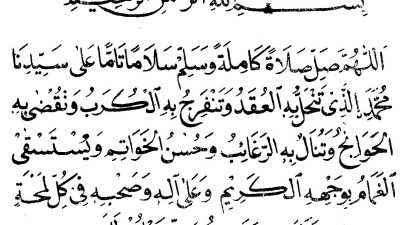 بسم الله الرحمن الرحيم
اَللّٰهُمَّ صَلِّ صَلَاةً كَامِلَةً وَسَلِّمْ سَلَامًا تَامًّا عَلٰى سَيِّدِنَا
مُحَمَّدِ ࣙالَّذِىْ تَنْحَلُّ بِهِ الْعُقَدُ وَتَنْفَرِجُ بِهِ الْكُرَبُ وَتُقْضٰى بِهِ
الْحَوَائِجُ وَتُنَالُ بِهِ الرَّغَائِبُ وَحُسْنُ الْخَوَاتِمِ وَيُسْتَسْقٰى
الْغَمَامُ بِوَجْهِهِ الْكَرِيْمِ وَعَلٰى اٰلِهِ وَصَحْبِهِ فِى كُلِّ لَمْحَةٍ